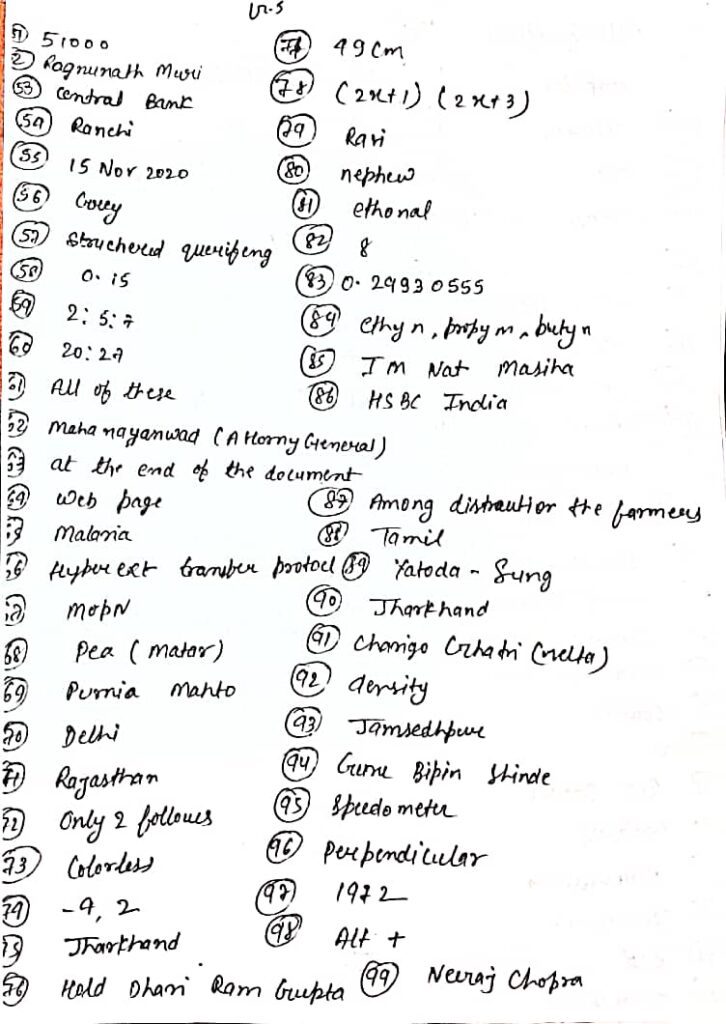 Ur.5
51) 51000
52) Ragnunath Muri
53) Central Bank
54) Ranchi
55) 15 Nov 2020
56) Grey
57) Struchered querifeng
58) 0.15
59) 2:5:7
60) 20:27
61) All of these
62) Mahanayanwad (Attorny General)
63) at the end of the document
64) Web page
65) Malaria
66) Hyper ext transfer protocl
67) MOPN
68) Pea (matar)
69) Purnia Mahto
70) Delhi
71) Rajasthan
72) Only 2 follows
73) Colorless
74) -4, 2
75) Jharkhand
76) Hald Dhani Ram Gupta
77) 49 cm
78) (2x+1) (2x+3)
79) Ravi
80) nephew
81) ethonal
82) 8
83) 0.29930555
84) ethyn, propyn, butyn
85) IM Nat Masiha
86) HSBC India
87) Among distrautior the farmers
88) Tamil
89) Yatoda - Sung
90) Jharkhand
91) Chhatri
92) density
93) Jamsedhpur
94) Bipin Shinde
95) Speedometer
96) Perpendicular
97) 1972
98) Alt +
99) Neeraj Chopra